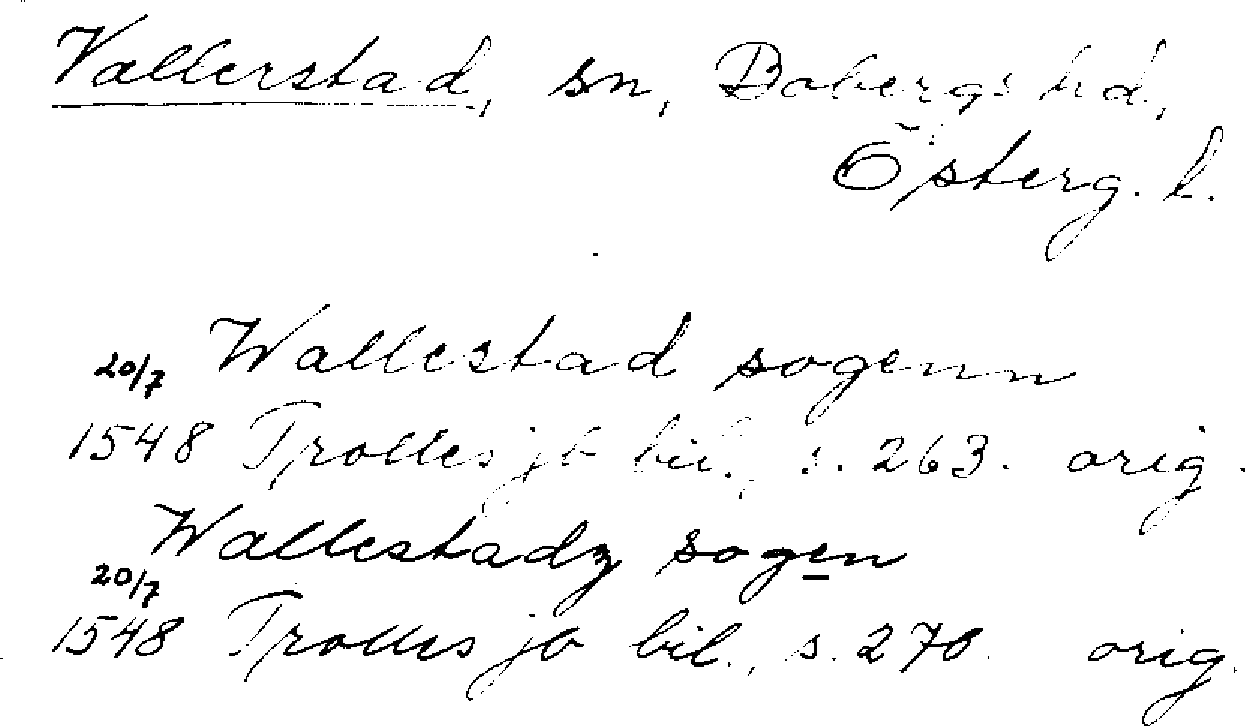 Vallerstad, sn, Bobergs hd,
Österg. l.
20/7 Wallestad sogenn
1548 Trolles jb bil., s. 263. orig.
Wallestadz sogen
20/7
1548 Trolles jb bil., s. 270. orig.